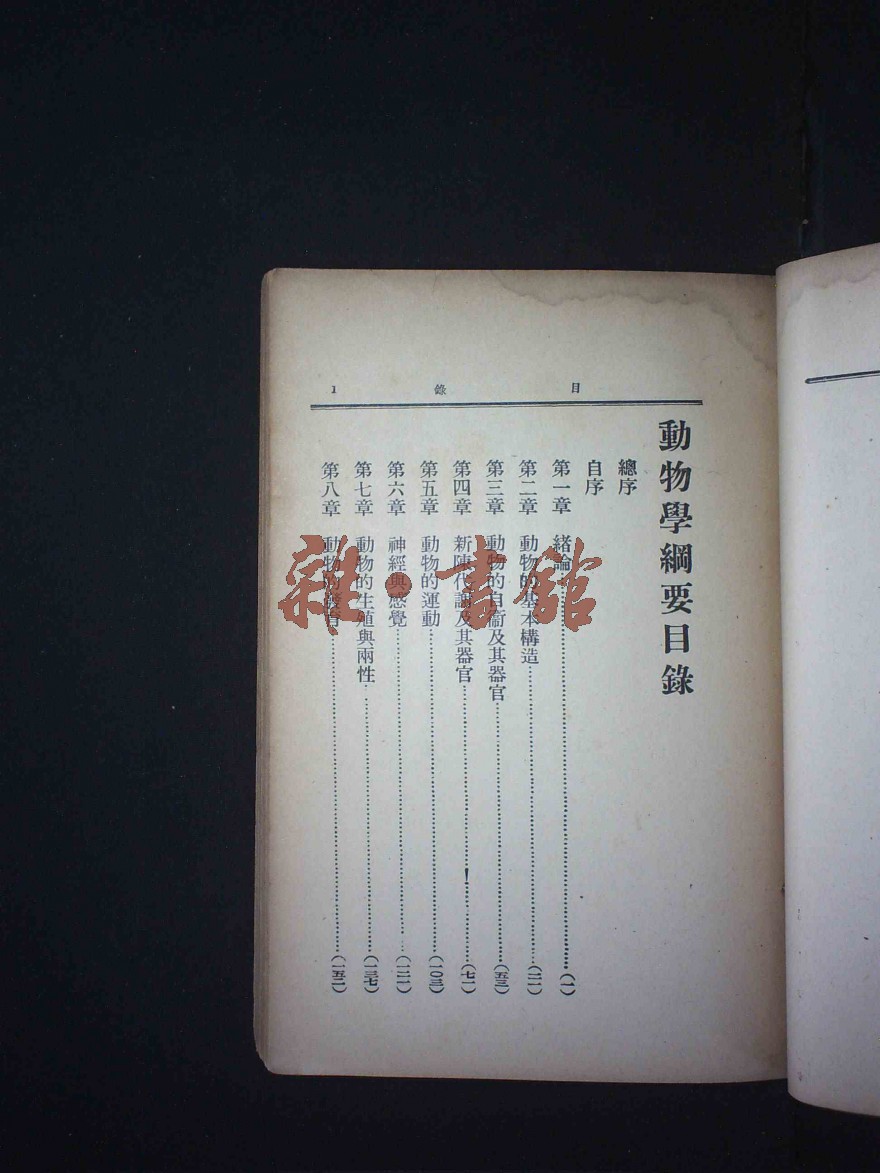 目錄 1
動物學綱要目錄
總序
自序
第一章 緒論……(一)
第二章 動物的基本構造……(二一)
第三章 動物的自衞及其器官……(五三)
第四章 新陳代謝及其器官……(七一)
第五章 動物的運動……(一〇三)
第六章 神經與感覺……(一二一)
第七章 動物的生殖與兩性……(一三七)
第八章 動物的發育……(一五二)
雜·書館